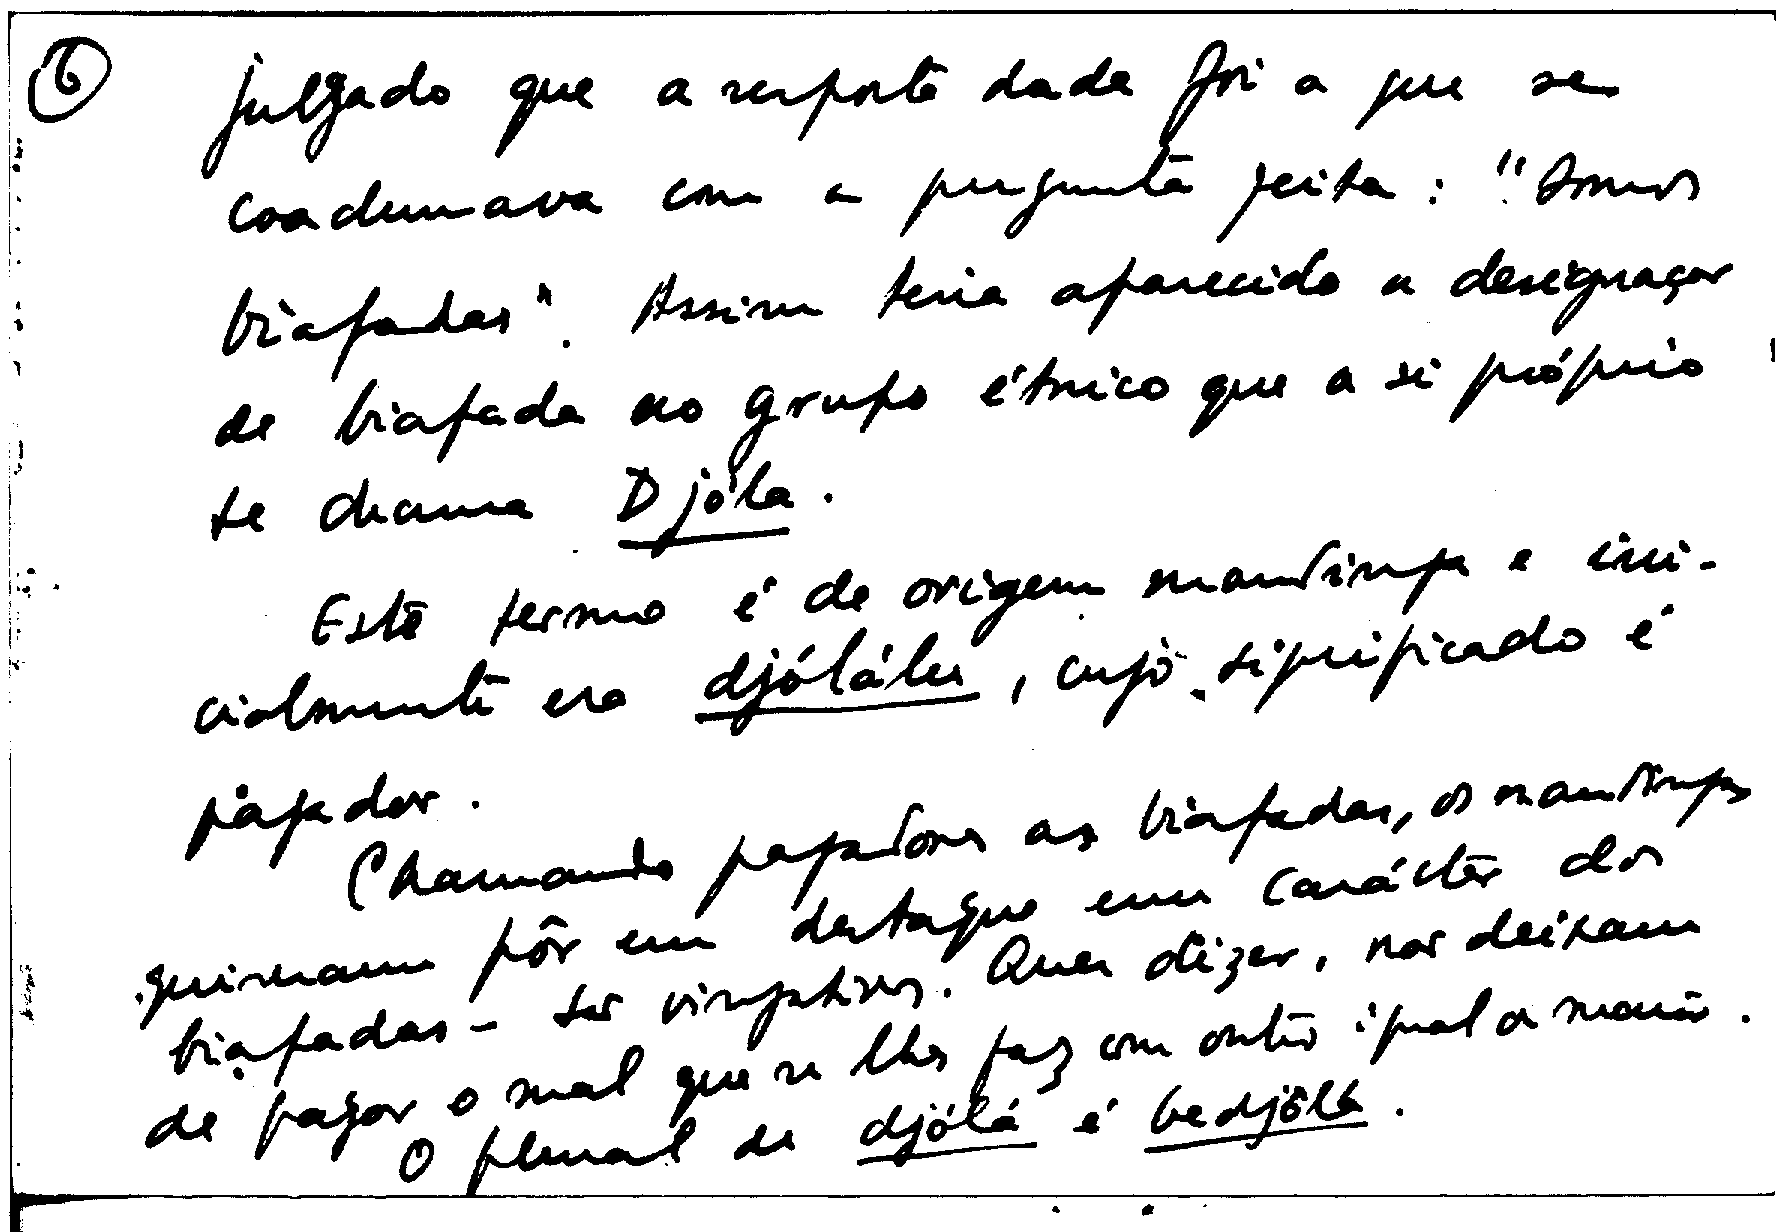 6
julgado que a resposta dada foi a que se
coadunava com a pergunta feita: "Somos
biafadas". Assim teria aparecido a designação
de biafada ao grupo étnico que a si próprio
se chama Djóla.
Este termo é de origem mandinga e ini-
cialmente era djóláler, cujo significado é
pagador.
Chamando pagadores aos biafadas, os mandingas
quiseram pôr em destaque um carácter dos
biafadas - ser vingativos. Quer dizer, não deixam
de pagar o mal que se lhes faz com outro igual ou maior.
O plural de djólá é bedjólá.